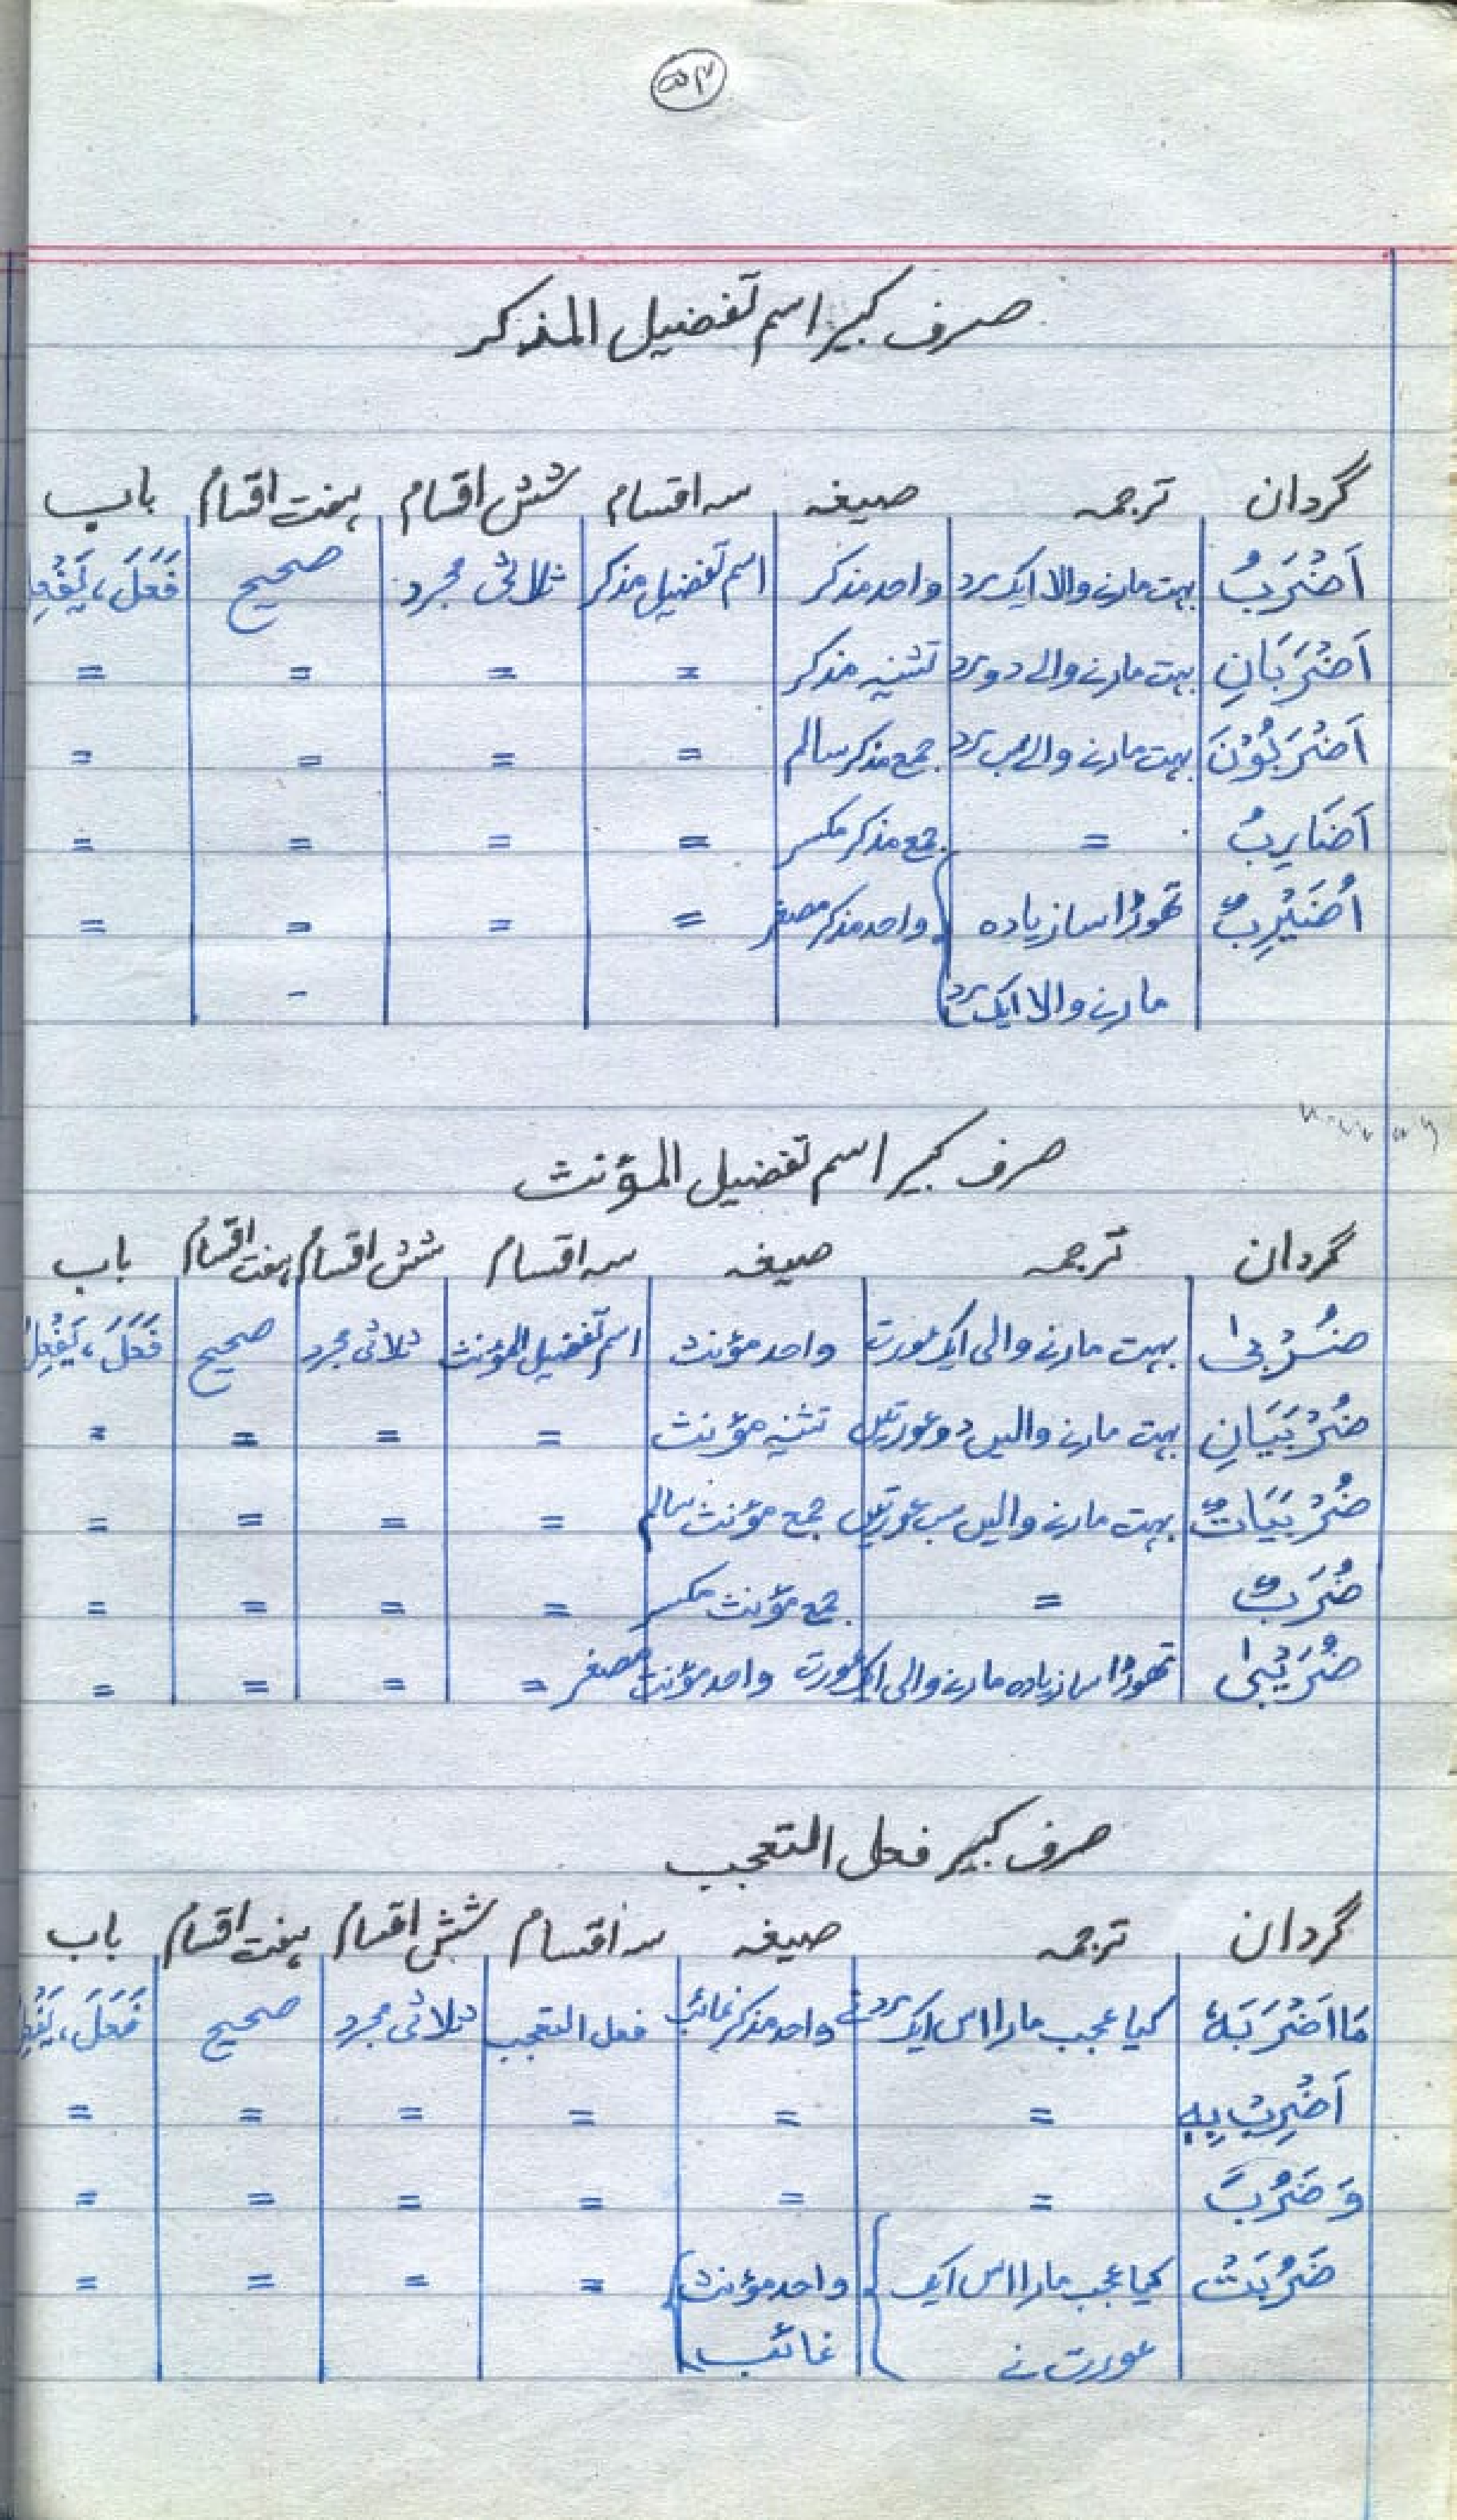 صرف کبیر اسم تفضیل المذکر
گردان ترجمہ صیغہ سہ اقسام شش اقسام ہفت اقسام باب
اَضْرَبُ بہت مارنے والا ایک مرد واحد مذکر اسم تفضیل مذکر ثلاثی مجرد صحیح فَعَلَ، یَفْعِلُ
اَضْرَبَانِ بہت مارنے والے دو مرد تثنیہ مذکر = = = =
اَضْرَبُوْنَ بہت مارنے والے سب مرد جمع مذکر سالم = = = =
اَضَارِبُ = جمع مذکر مکسر = = = =
اُضَیْرِبٌ تھوڑا سا زیادہ واحد مذکر مصغر = = = =
مارنے والا ایک مرد -
صرف کبیر اسم تفضیل المؤنث
گردان ترجمہ صیغہ سہ اقسام شش اقسام ہفت اقسام باب
ضُرْبٰی بہت مارنے والی ایک عورت واحد مؤنث اسم تفضیل المؤنث ثلاثی مجرد صحیح فَعَلَ، یَفْعِلُ
ضُرْبَیَانِ بہت مارنے والیں دو عورتیں تثنیہ مؤنث = = = =
ضُرْبَیَاتٌ بہت مارنے والیں سب عورتیں جمع مؤنث سالم = = = =
ضُرَبٌ = جمع مؤنث مکسر = = = =
ضُرَیْبٰی تھوڑا سا زیادہ مارنے والی ایک عورت واحد مؤنث مصغر = = = =
صرف کبیر فعل التعجب
گردان ترجمہ صیغہ سہ اقسام شش اقسام ہفت اقسام باب
مَا اَضْرَبَہٗ کیا عجب مارا اس ایک مرد نے واحد مذکر غائب فعل التعجب ثلاثی مجرد صحیح فَعَلَ، یَفْعِلُ
اَضْرِبْ بِہٖ = = = = = =
وَ ضَرُبَ = = = = = =
ضَرُبَتْ کیا عجب مارا اس ایک واحد مؤنث = = = =
عورت نے غائب